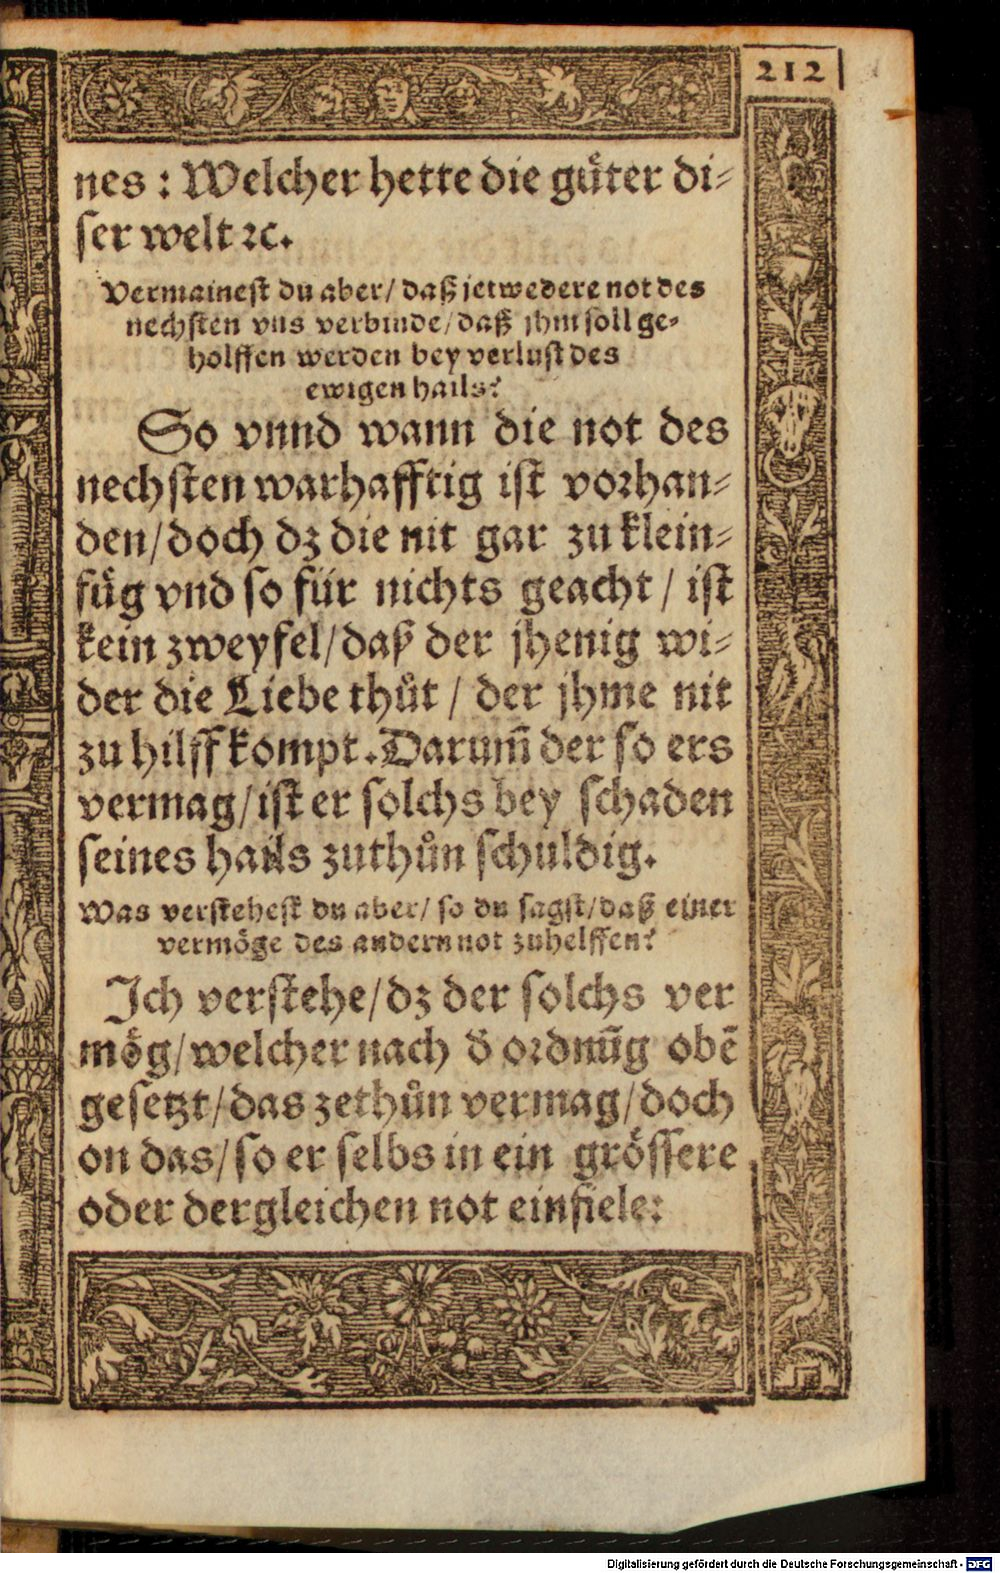 212
nes : Welcher hette die guͤter di⸗
ſer welt ꝛc.
Vermaineſt du aber/ daß jetwedere not des
nechſten vns verbinde/ daß jhm ſoll ge⸗
holffen werden bey verluſt des
ewigen hails?
So vnnd wann die not des
nechſten warhafftig iſt vorhan⸗
den/ doch dz die nit gar zu klein⸗
fuͤg vnd ſo für nichts geacht / iſt
kein zweyfel/ daß der jhenig wi⸗
der die Liebe thuͦt / der jhme nit
zu hilff kompt. Darum̃ der ſo ers
vermag/ iſt er ſolchs bey ſchaden
ſeines hails zuthuͦn ſchuldig.
Was verſteheſt du aber/ ſo du ſagſt/ daß einer
vermoͤge des andern not zuhelffen?
Ich verſtehe/ dz der ſolchs ver
moͤg/ welcher nach d̕ ordnũg obẽ
geſetzt/ das zethuͦn vermag/ doch
on das/ ſo er ſelbs in ein groͤſſere
oder dergleichen not einfiele:
Digitalisierung gefördert durch die Deutsche Forschungsgemeinschaft - DFG